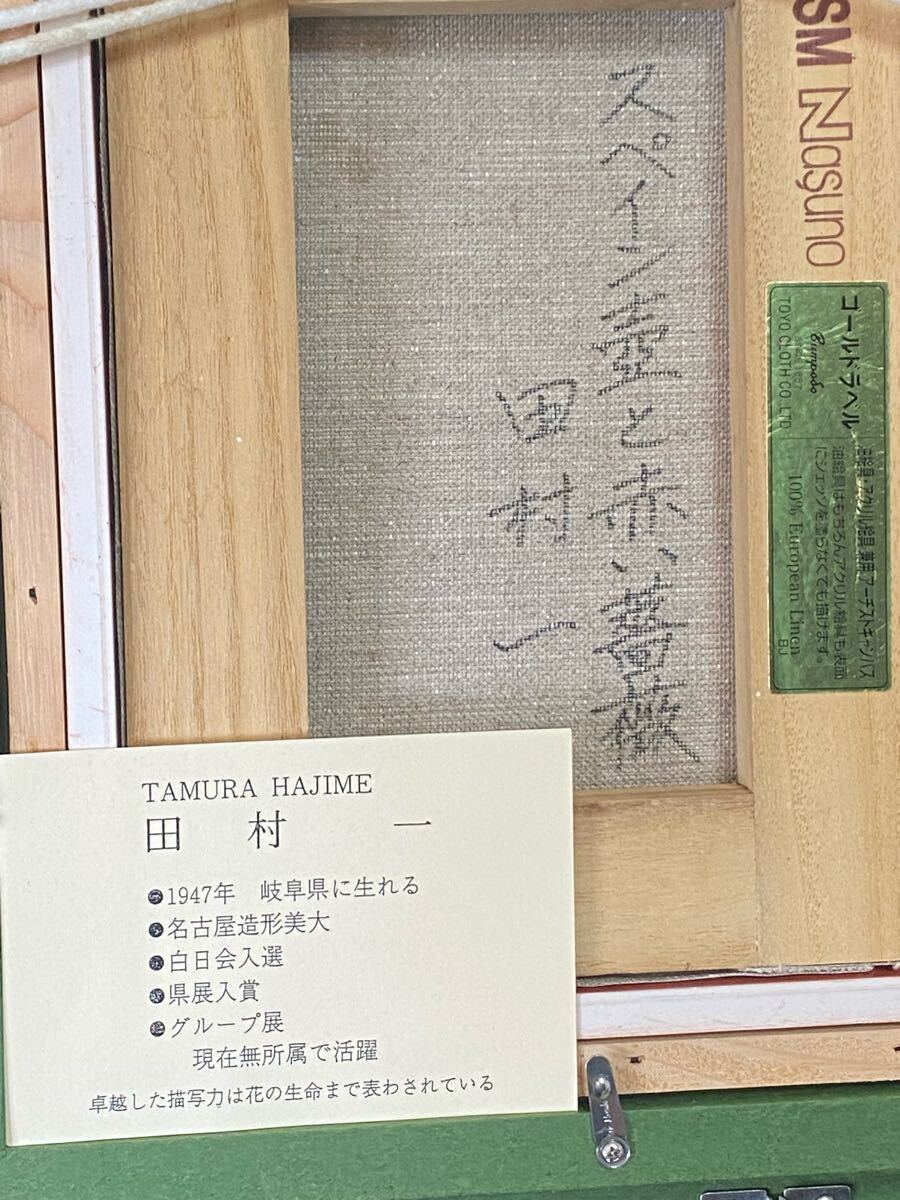 スペイン壺と赤い薔薇
田村 一
SM Nasuno
ゴールドラベル
Bumpodo
TOYO CLOTH CO. LTD.
油絵具・アクリル絵具兼用アーチストキャンバス
油絵具はもちろんアクリル絵具も表面
にジェッソを塗らなくても描けます。
100% European Linen
BJ
TAMURA HAJIME
田 村 一
●1947年 岐阜県に生れる
●名古屋造形美大
●白日会入選
●県展入賞
●グループ展
現在無所属で活躍
卓越した描写力は花の生命まで表わされている